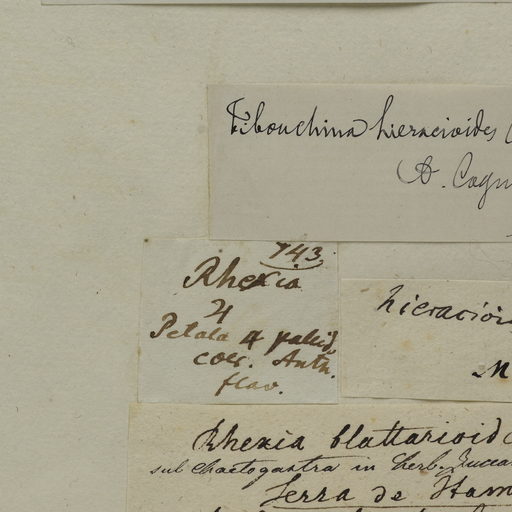 Tibouchina hieracioides
A. Cogn
743.
Rhexia
♃
Petala 4 pallid
coer. Anth.
flav.
hieracioi
M
Rhexia blattarioid
sub Chaetogastra in herb. Zuccar
Serra de Itam